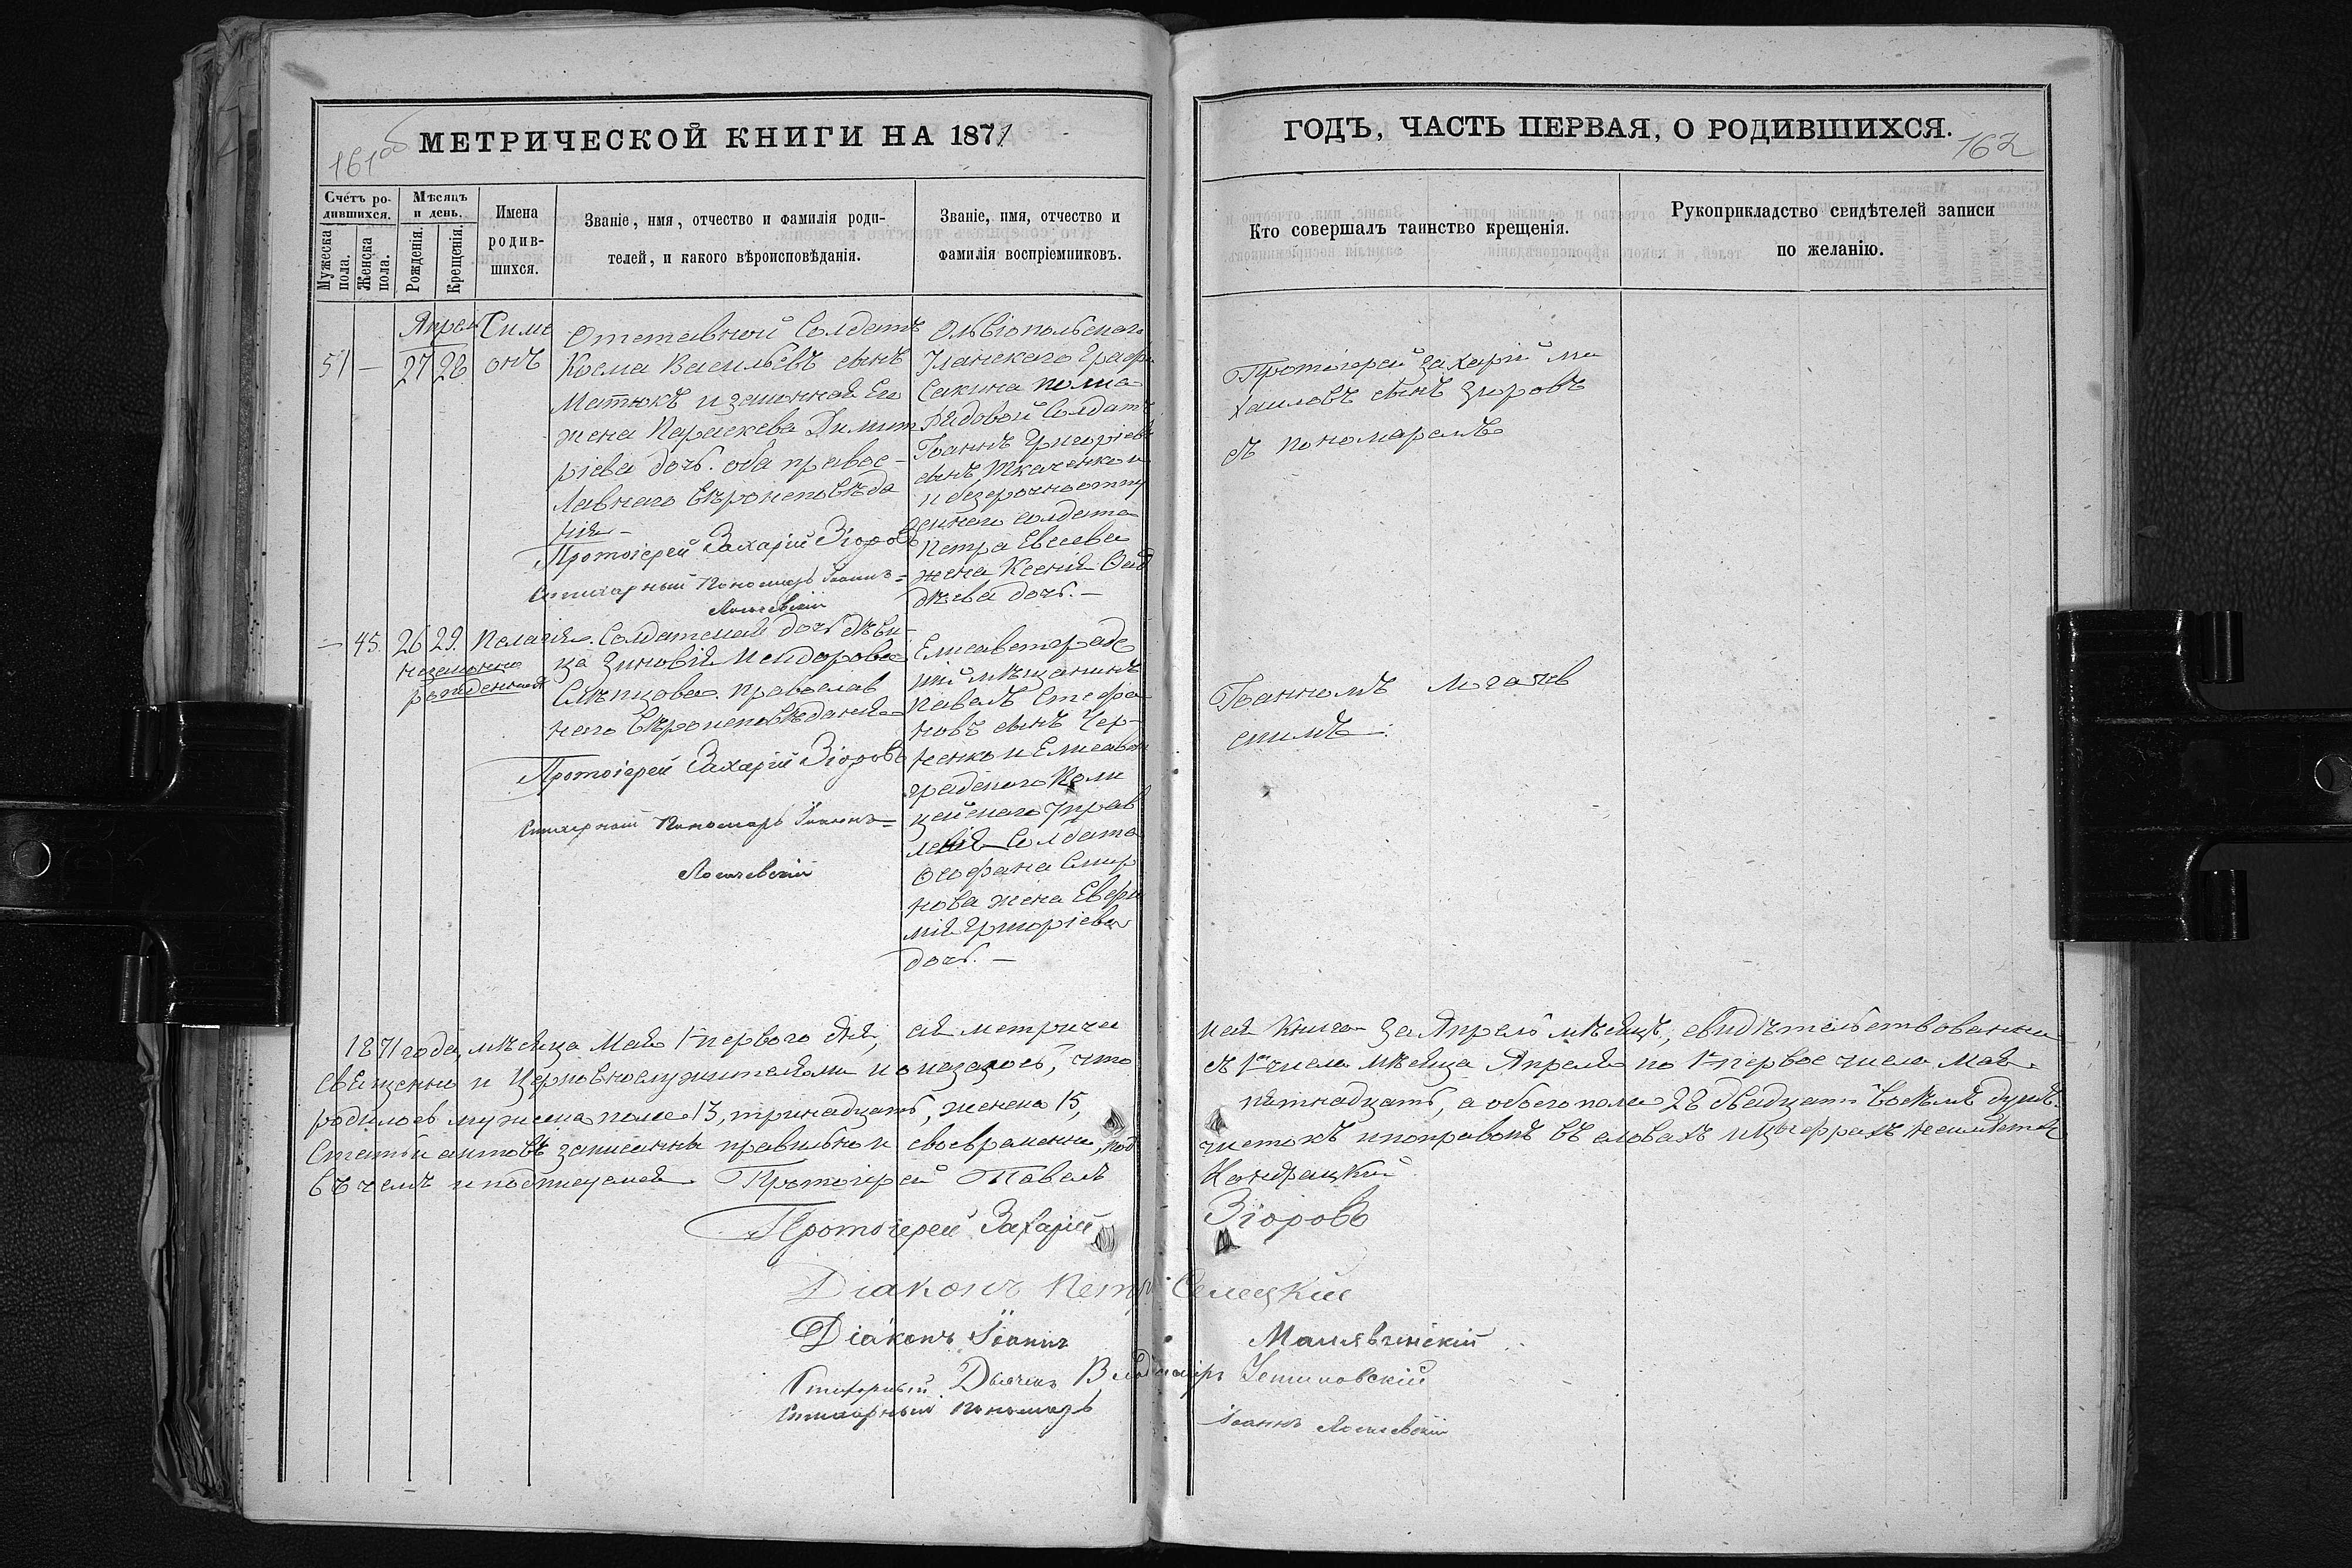 161об
МЕТРИЧЕСКОЙ КНИГИ НА 1871
ГОДЪ, ЧАСТЬ ПЕРВАЯ, О РОДИВШИХСЯ.
162
Счётъ ро-
дившихся.
Мужеска
пола.
Женска
пола.
Мѣсяцъ
и день.
Рожденія.
Крещенія.
Имена
родив-
шихся.
Званіе, имя, отчество и фамилія роди-
телей, и какого вѣроисповѣданія.
Званіе, имя, отчество и
фамилія воспріемниковъ.
Кто совершалъ таинство крещенія.
Рукоприкладство свидѣтелей записи
по желанію.
Апрел
51 — 27 28
Симе
онъ
Отставной Солдатъ
Косма Васильевъ сынъ
Матюкъ и законная Его
жена Параскева Димит
ріева дочь. оба правос-
лавнаго вѣроисповѣда
нія —
Протоіерей Захарій Згоровъ
Стихарный Пономарь Іоаннъ =
Лосиевскій
Ольвіопольскаго
Уланскаго Графа
Сакина полка
Рядовой Солдатъ
Іоаннъ Григоріевъ
сынъ Ткаченко и
и безсрочноотпу
щеннаго солдата
Петра Евсеева
жена Ксенія Фад
дѣева дочь. —
Протоіерей Захарій Ми
хаиловъ сынъ Згоровъ
съ пономаремъ
— 45. 26 29. Пелагія.
незаконно
рожденная
Солдатская дочь дѣви-
ца Зиновія Исидорова
Слѣпцова. православ
наго вѣроисповѣданія
Протоіерей Захарій Згоровъ
Стихарный Пономарь Іоаннъ =
Лосиевскій
Елисаветградс
кій мѣщанинъ
Павелъ Стефа
новъ сынъ Чер-
ненко и Елисавет
градскаго Поли
цейскаго управ
ленія Солдата
Ѳеофана Смир
нова жена Евфи
мія Григоріева
дочь. —
Іоанномъ
скимъ.
1871 года, мѣсяца Мая 1 первого дня, сія метричес
кая Книга за Апрель мѣсяцъ, свидѣтельствованна
священно и Церковнослужителями и оказалось, что
съ 1го числа мѣсяца Апреля по 1 первое число Мая
родилось мужеска пола 13, тринадцать, женска 15,
пятнадцать, а обоего пола 28 двадцать восемь душъ.
Статьи актовъ записанны правильно и своевременно, под
чистокъ и поправокъ въ словахъ и Цыфрахъ неимѣется
въ чемъ и подписуемся. Протоіерей Павелъ
Протоіерей Захарій Згоровъ
Діаконъ Петръ Селецкій
Діаконъ Іоаннъ Малявинскій
Стихарный Дьячекъ Владиміръ
Стихарный Пономарь Іоаннъ Лосиевскій